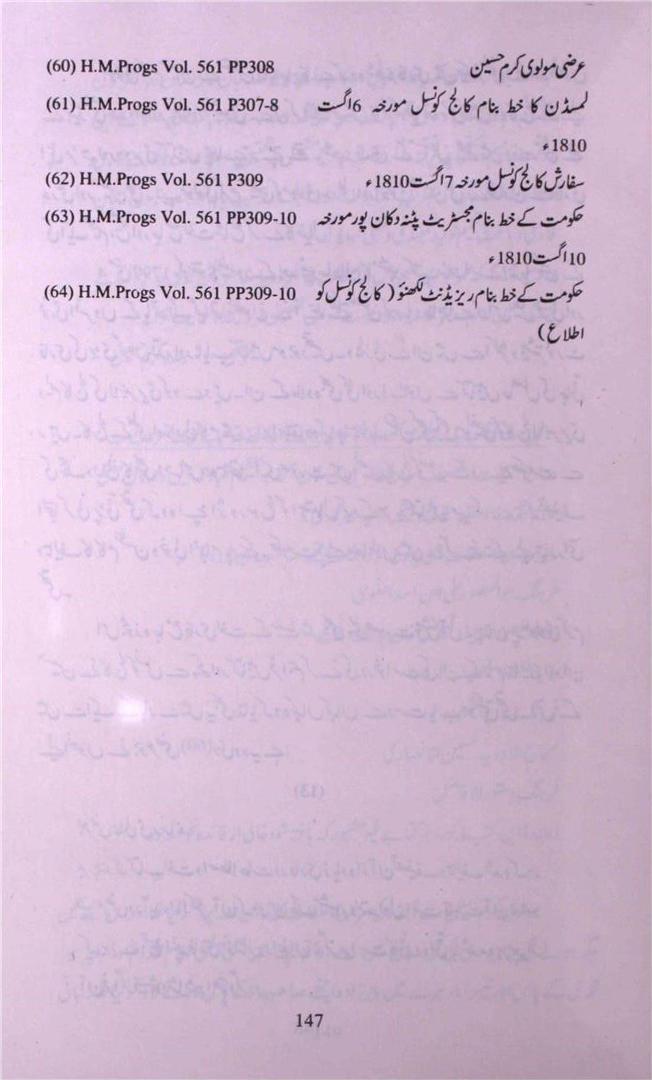 (60) H.M.Progs Vol. 561 PP308 عرضی مولوی کرم حسین
(61) H.M.Progs Vol. 561 P307-8 لمسڈن کا خط بنام کالج کونسل مورخہ 6اگست
1810ء
(62) H.M.Progs Vol. 561 P309 سفارش کالج کونسل مورخہ 7اگست 1810ء
(63) H.M.Progs Vol. 561 PP309-10 حکومت کے خط بنام مجسٹریٹ پٹنہ و کان پور مورخہ
10اگست 1810ء
(64) H.M.Progs Vol. 561 PP309-10 حکومت کے خط بنام ریزیڈنٹ لکھنؤ ( کالج کونسل کو
اطلاع )
147